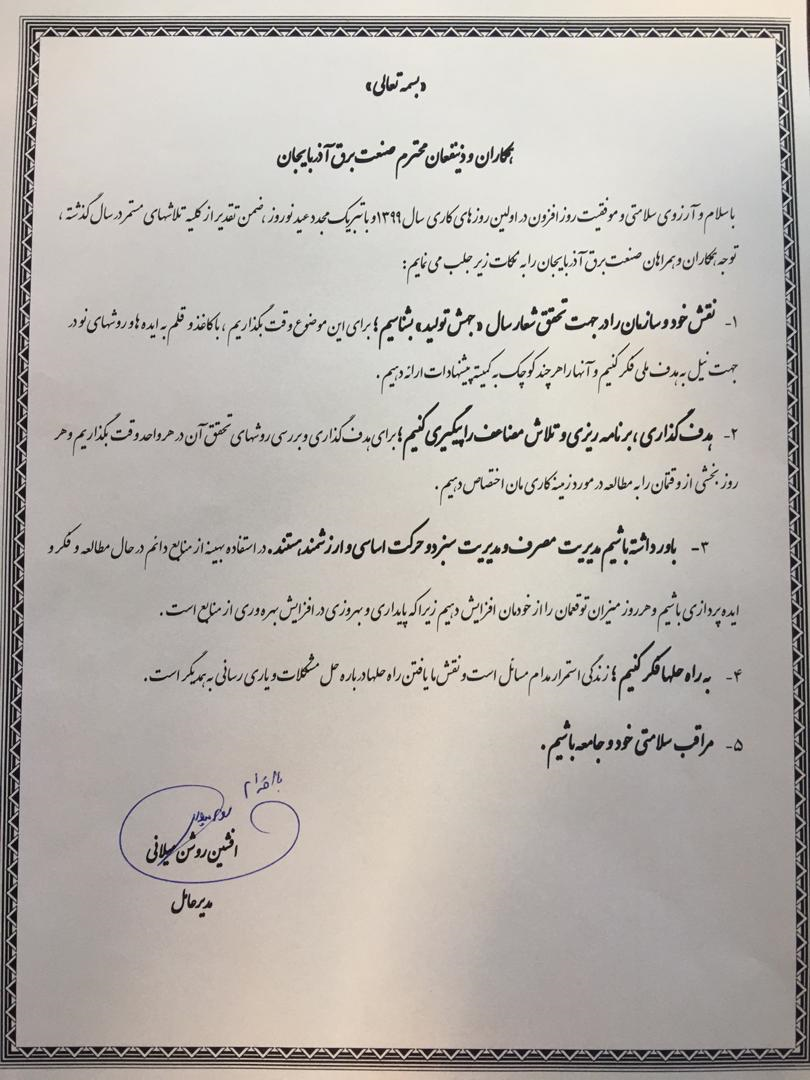 «بسمه تعالی»
همکاران و ذینفعان محترم صنعت برق آذربایجان
با سلام و آرزوی سلامتی و موفقیت روز افزون در اولین روزهای کاری سال ۱۳۹۹ و با تبریک مجدد عید نوروز، ضمن تقدیر از کلیه تلاشهای مستمر در سال گذشته ،
توجه همکاران و همراهان صنعت برق آذربایجان را به نکات زیر جلب می نمایم :
۱- نقش خود و سازمان را در جهت تحقق شعار سال «جهش تولید» بشناسیم ؛ برای این موضوع وقت بگذاریم ، با کاغذ و قلم به ایده ها و روشهای نو در
جهت نیل به هدف ملی فکر کنیم و آنها را هر چند کوچک به کمیته پیشنهادات ارائه دهیم .
۲- هدف گذاری ، برنامه ریزی و تلاش مضاعف را پیگیری کنیم ؛ برای هدف گذاری و بررسی روشهای تحقق آن در هر واحد وقت بگذاریم و هر
روز بخشی از وقتمان را به مطالعه در مورد زمینه کاری مان اختصاص دهیم .
۳- باور داشته باشیم مدیریت مصرف و مدیریت سبز دو حرکت اساسی و ارزشمند هستند. در استفاده بهینه از منابع دائم در حال مطالعه و فکر و
ایده پردازی باشیم و هر روز میزان توقعمان را از خودمان افزایش دهیم زیرا که پایداری و بهروزی در افزایش بهره وری از منابع است .
۴- به راه حلها فکر کنیم ؛ زندگی استمرار مدام مسائل است و نقش ما یافتن راه حلها درباره حل مشکلات و یاری رسانی به همدیگر است .
۵- مراقب سلامتی خود و جامعه باشیم .
با احترام
افشین روشن میلانی
مدیرعامل